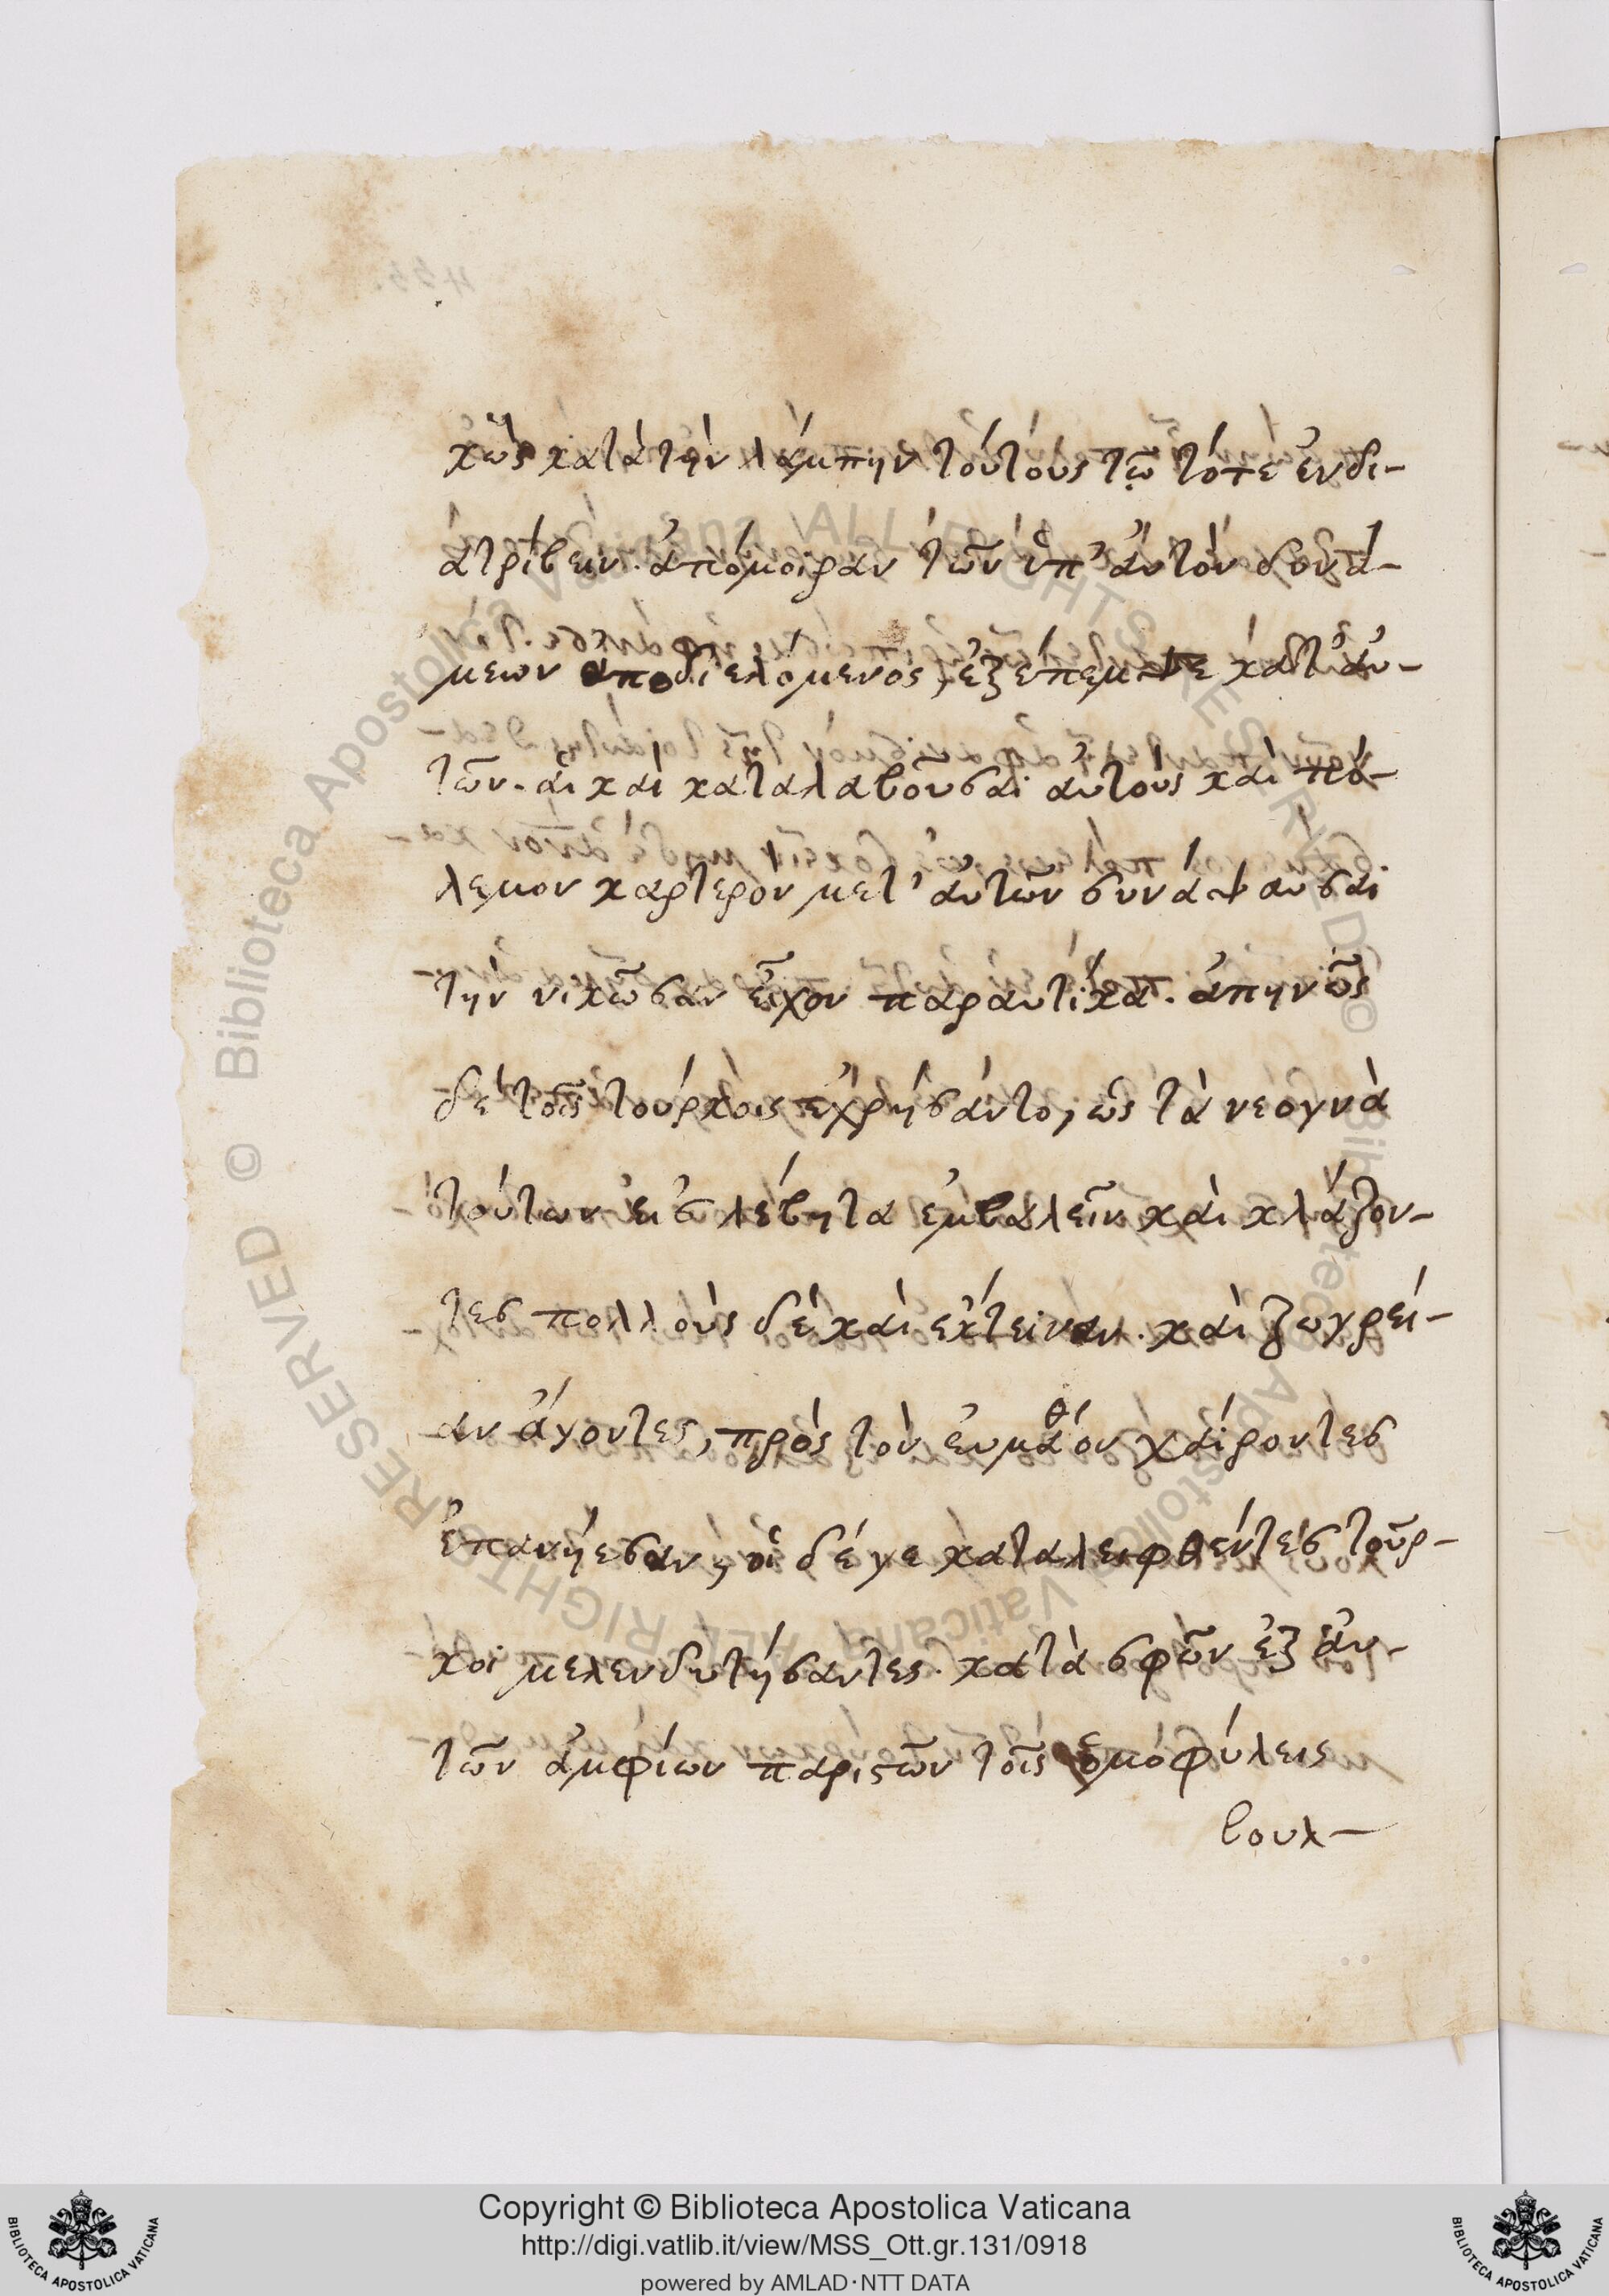 κὼς κατὰ τὴν λάμπην τούτους τῶ τότε ἐνδι-
ατρίβειν. ἀπόμοιραν τῶν ὑπ' ἀυτὸν δυνά-
μεων αποδιελόμενος, ἐξέπεμψε κατ' ἀυ-
τῶν. αἳ καὶ καταλαβοῦσαι ἀυτοὺς καὶ πό-
λεμον καρτερὸν μετ' ἀυτῶν συνάψασαι
τὴν νικῶσαν εἶχον παραυτίκα. ἀπηνῶς
δὲ τοῖς τούρκοις ἐχρήσαντο, ὡς τὰ νεογνὰ
τούτων εἰς λέβητα ἐμβαλεῖν καὶ κλάζον-
τες πολλοὺς δὲ καὶ εκτειναν. καὶ ζωγρεί-
αν ἄγοντες, πρὸς τὸν ἐυμάθιον χαίροντες
ἐπανήεσαν, οἱ δέ γε καταλειφθέντες τοῦρ-
κοι μελενδυτήσαντες. κατὰ σφῶν ἐξ ἀυ-
τῶν ἀμφίων παριστῶν τοῖς ὁμοφύλεις
βουλ-
Copyright © Biblioteca Apostolica Vaticana
http://digi.vatlib.it/view/MSS_Ott.gr.131/0918
powered by AMLAD·NTT DATA